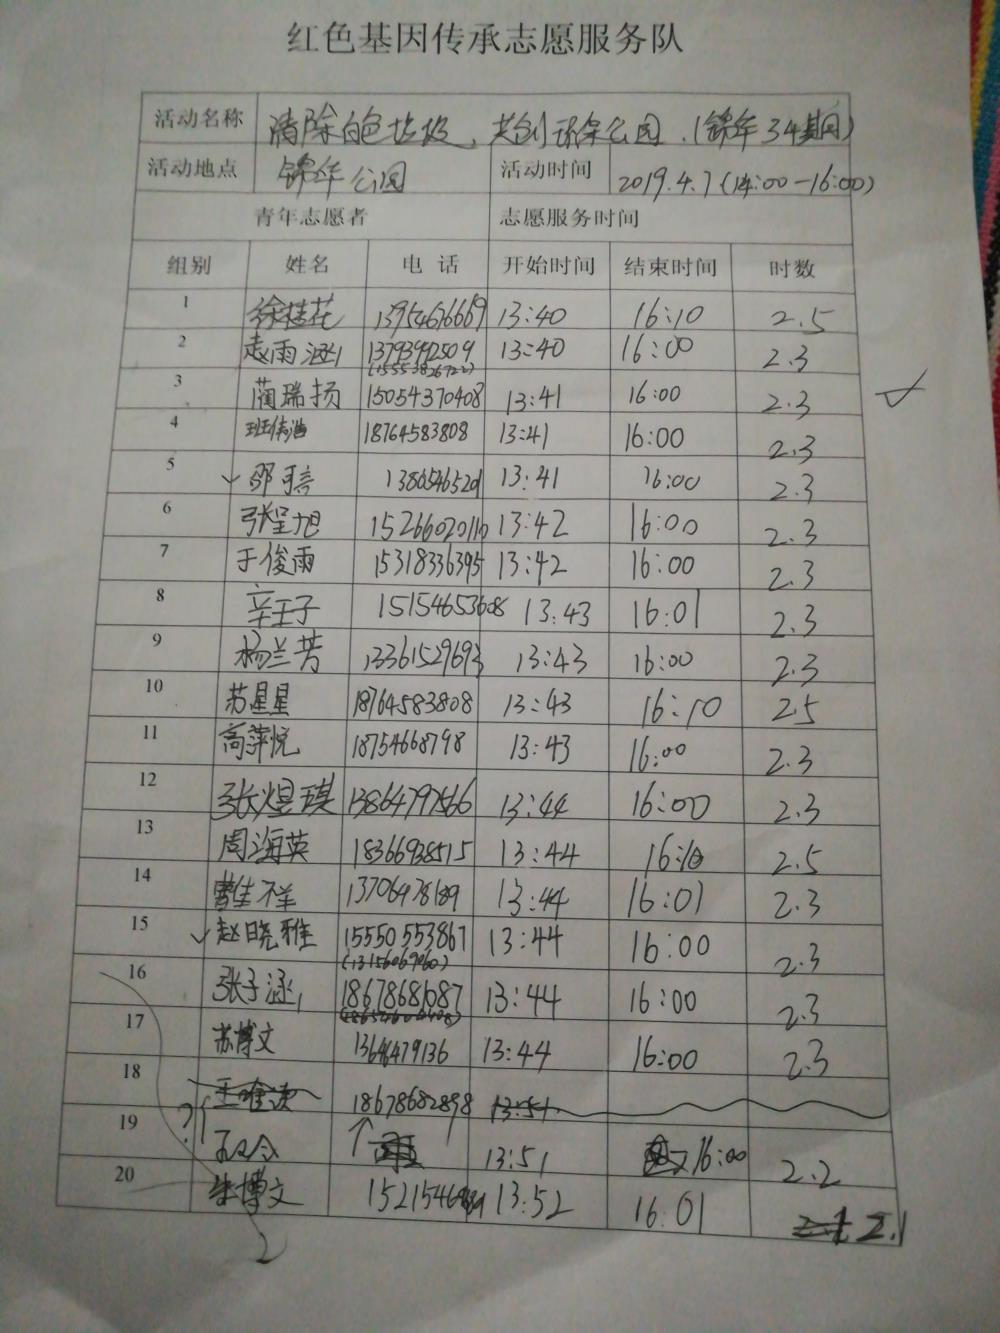 红色基因传承志愿服务队
活动名称 清除白色垃圾、共创环保公园.(锦华34期)
活动地点 锦华公园 活动时间 2019.4.7(14:00-16:00)
青年志愿者 志愿服务时间
组别 姓名 电话 开始时间 结束时间 时数
1 徐桂花 13954676669 13:40 16:10 2.5
2 赵雨涵 13793992509 13:40 16:00 2.3
(15553826722)
3 蔺瑞扬 15054370408 13:41 16:00 2.3
4 18764583808 13:41 16:00 2.3
5 13:41 16:00 2.3
6 张呈旭 13:42 16:00 2.3
7 于俊雨 15318336395 13:42 16:00 2.3
8 辛壬子 15154653608 13:43 16:01 2.3
9 杨兰芳 13361529693 13:43 16:00 2.3
10 苏星星 18764583808 13:43 16:10 2.5
11 高萍悦 18754668798 13:43 16:00 2.3
12 张煜琪 13864797566 13:44 16:00 2.3
13 周海英 18366938515 13:44 16:10 2.5
14 13706478189 13:44 16:01 2.3
15 赵晓雅 15550553867 13:44 16:00 2.3
(13156069060)
16 张子涵 18678681687 13:44 16:00 2.3
17 苏博文 13646479136 13:44 16:00 2.3
18 18678682898 13:51
19 13:51 16:00 2.2
20 朱博文 13:52 16:01 2.1
2